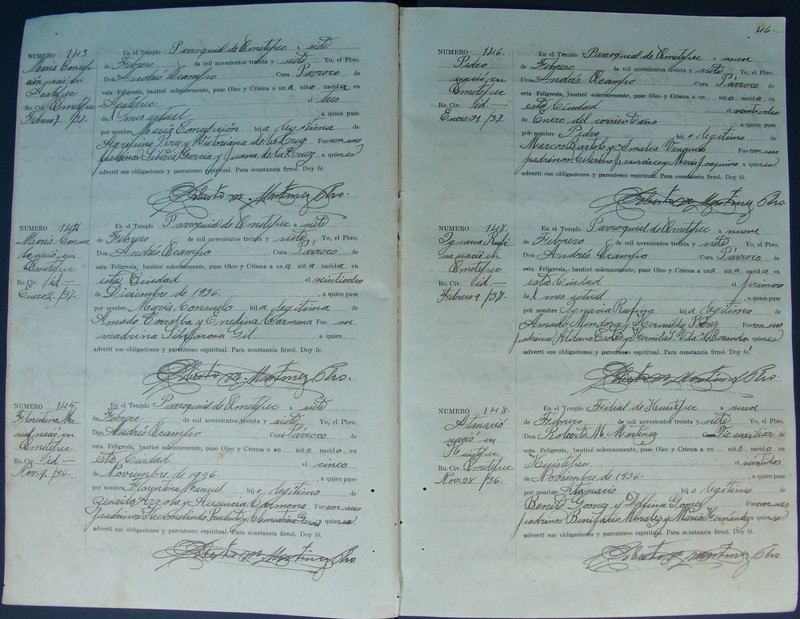 NUMERO 143
María Concepción, nació en
Ro. Civ. Ometepec
Febrero 7/37.
En el Templo Parroquial de Ometepec a siete
de Febrero de mil novecientos treinta y siete Yo, el Pbro.
Don Andrés Ocampo Cura Párroco de
esta Feligresía, bauticé solemnemente, puse Oleo y Crisma a una niña nacida en
el tres
de mes actual a quien puse
por nombre María Concepción hija legítima
y Victoriana de la Cruz
García y Juana de la Cruz a quienes
advertí sus obligaciones y parentesco espiritual. Para constancia firmé. Doy fé.
Roberto M. Martínez Pbro.
NUMERO 144
María Consuelo nació en
Ometepec
Ro. Civ. id
Enero 2/37.
En el Templo Parroquial de Ometepec a siete
de Febrero de mil novecientos treinta y siete, Yo, el Pbro.
Don Andrés Ocampo Párroco de
esta Feligresía, bauticé solemnemente, puse Oleo y Crisma a una niña nacida en
esta Ciudad el veintiocho
de Diciembre de 1936. , a quien puse
por nombre María Consuelo hija legítima
Amado Torralba y Enedina Carmona Fue su
madrina Gil. a quien
advertí sus obligaciones y parentesco espiritual. Para constancia firmé. Doy fé.
Roberto M. Martínez Pbro.
NUMERO 145.
Florentino Manuel nació en
Ometepec
Ro. Civ. id
Nov. 9/36.
En el Templo Parroquial de Ometepec a siete
de Febrero de mil novecientos treinta y siete, Yo, el Pbro.
Don Andrés Ocampo Cura Párroco de
esta Feligresía, bauticé solemnemente, puse Oleo y Crisma a un niño nacido en
esta Ciudad el cinco
de Noviembre de 1936 , a quien puse
por nombre Florentino Manuel hijo legítimo
Zenaido Arzola y Ausencia Carmona Fueron sus
padrinos quienes
advertí sus obligaciones y parentesco espiritual. Para constancia firmé. Doy fé.
Roberto M. Martínez Pbro
46.
NUMERO 146.
Pedro
nació en
Ometepec
Ro. Civ. id
Enero 31/37.
En el Templo Parroquial de Ometepec a nueve
de Febrero de mil novecientos treinta y siete Yo, el Pbro.
Don Andrés Ocampo Cura Párroco de
esta Feligresía, bauticé solemnemente, puse Oleo y Crisma a un niño nacido en
esta Ciudad el
de Enero del corriente año a quien puse
por nombre Pedro hijo legítimo
Marcos Bartolo y Amalia
padrinos y María Joaquina a quienes
advertí sus obligaciones y parentesco espiritual. Para constancia firmé. Doy fé.
Roberto M. Martínez Pbro.
NUMERO 147.
Ignacia Rufina nació en
Ometepec
Ro. Civ. id
Febrero 9/37.
En el Templo Parroquial de Ometepec a nueve
de Febrero de mil novecientos treinta y siete Yo, el Pbro.
Don Andrés Ocampo Párroco de
esta Feligresía, bauticé solemnemente, puse Oleo y Crisma a una niña nacida en
esta Ciudad el primero
de mes actual , a quien puse
por nombre Ignacia Rufina hija legítima
Amado y Hermila Fueron sus
padrinos y Vda. de quienes
advertí sus obligaciones y parentesco espiritual. Para constancia firmé. Doy fé.
Roberto M. Martínez Pbro.
NUMERO 148.
Atanacio
nació en
Huistepec
Ro. Civ. Ometepec
Nov. 28./36.
En el Templo Filial de Huistepec a nueve
de Febrero de mil novecientos treinta y siete Yo, el Pbro.
Don Roberto M. Martínez Cura Vic. auxiliar de
esta Feligresía, bauticé solemnemente, puse Oleo y Crisma a un niño nacido en
Huistepec el
de Noviembre de 1936. , a quien puse
por nombre Atanacio hijo legítimo
Benito Gómez y Delfina Gómez Fueron sus
padrinos Bonifacio Morales y María Hernández quienes
advertí sus obligaciones y parentesco espiritual. Para constancia firmé. Doy fé.
Roberto M. Martínez Pbro